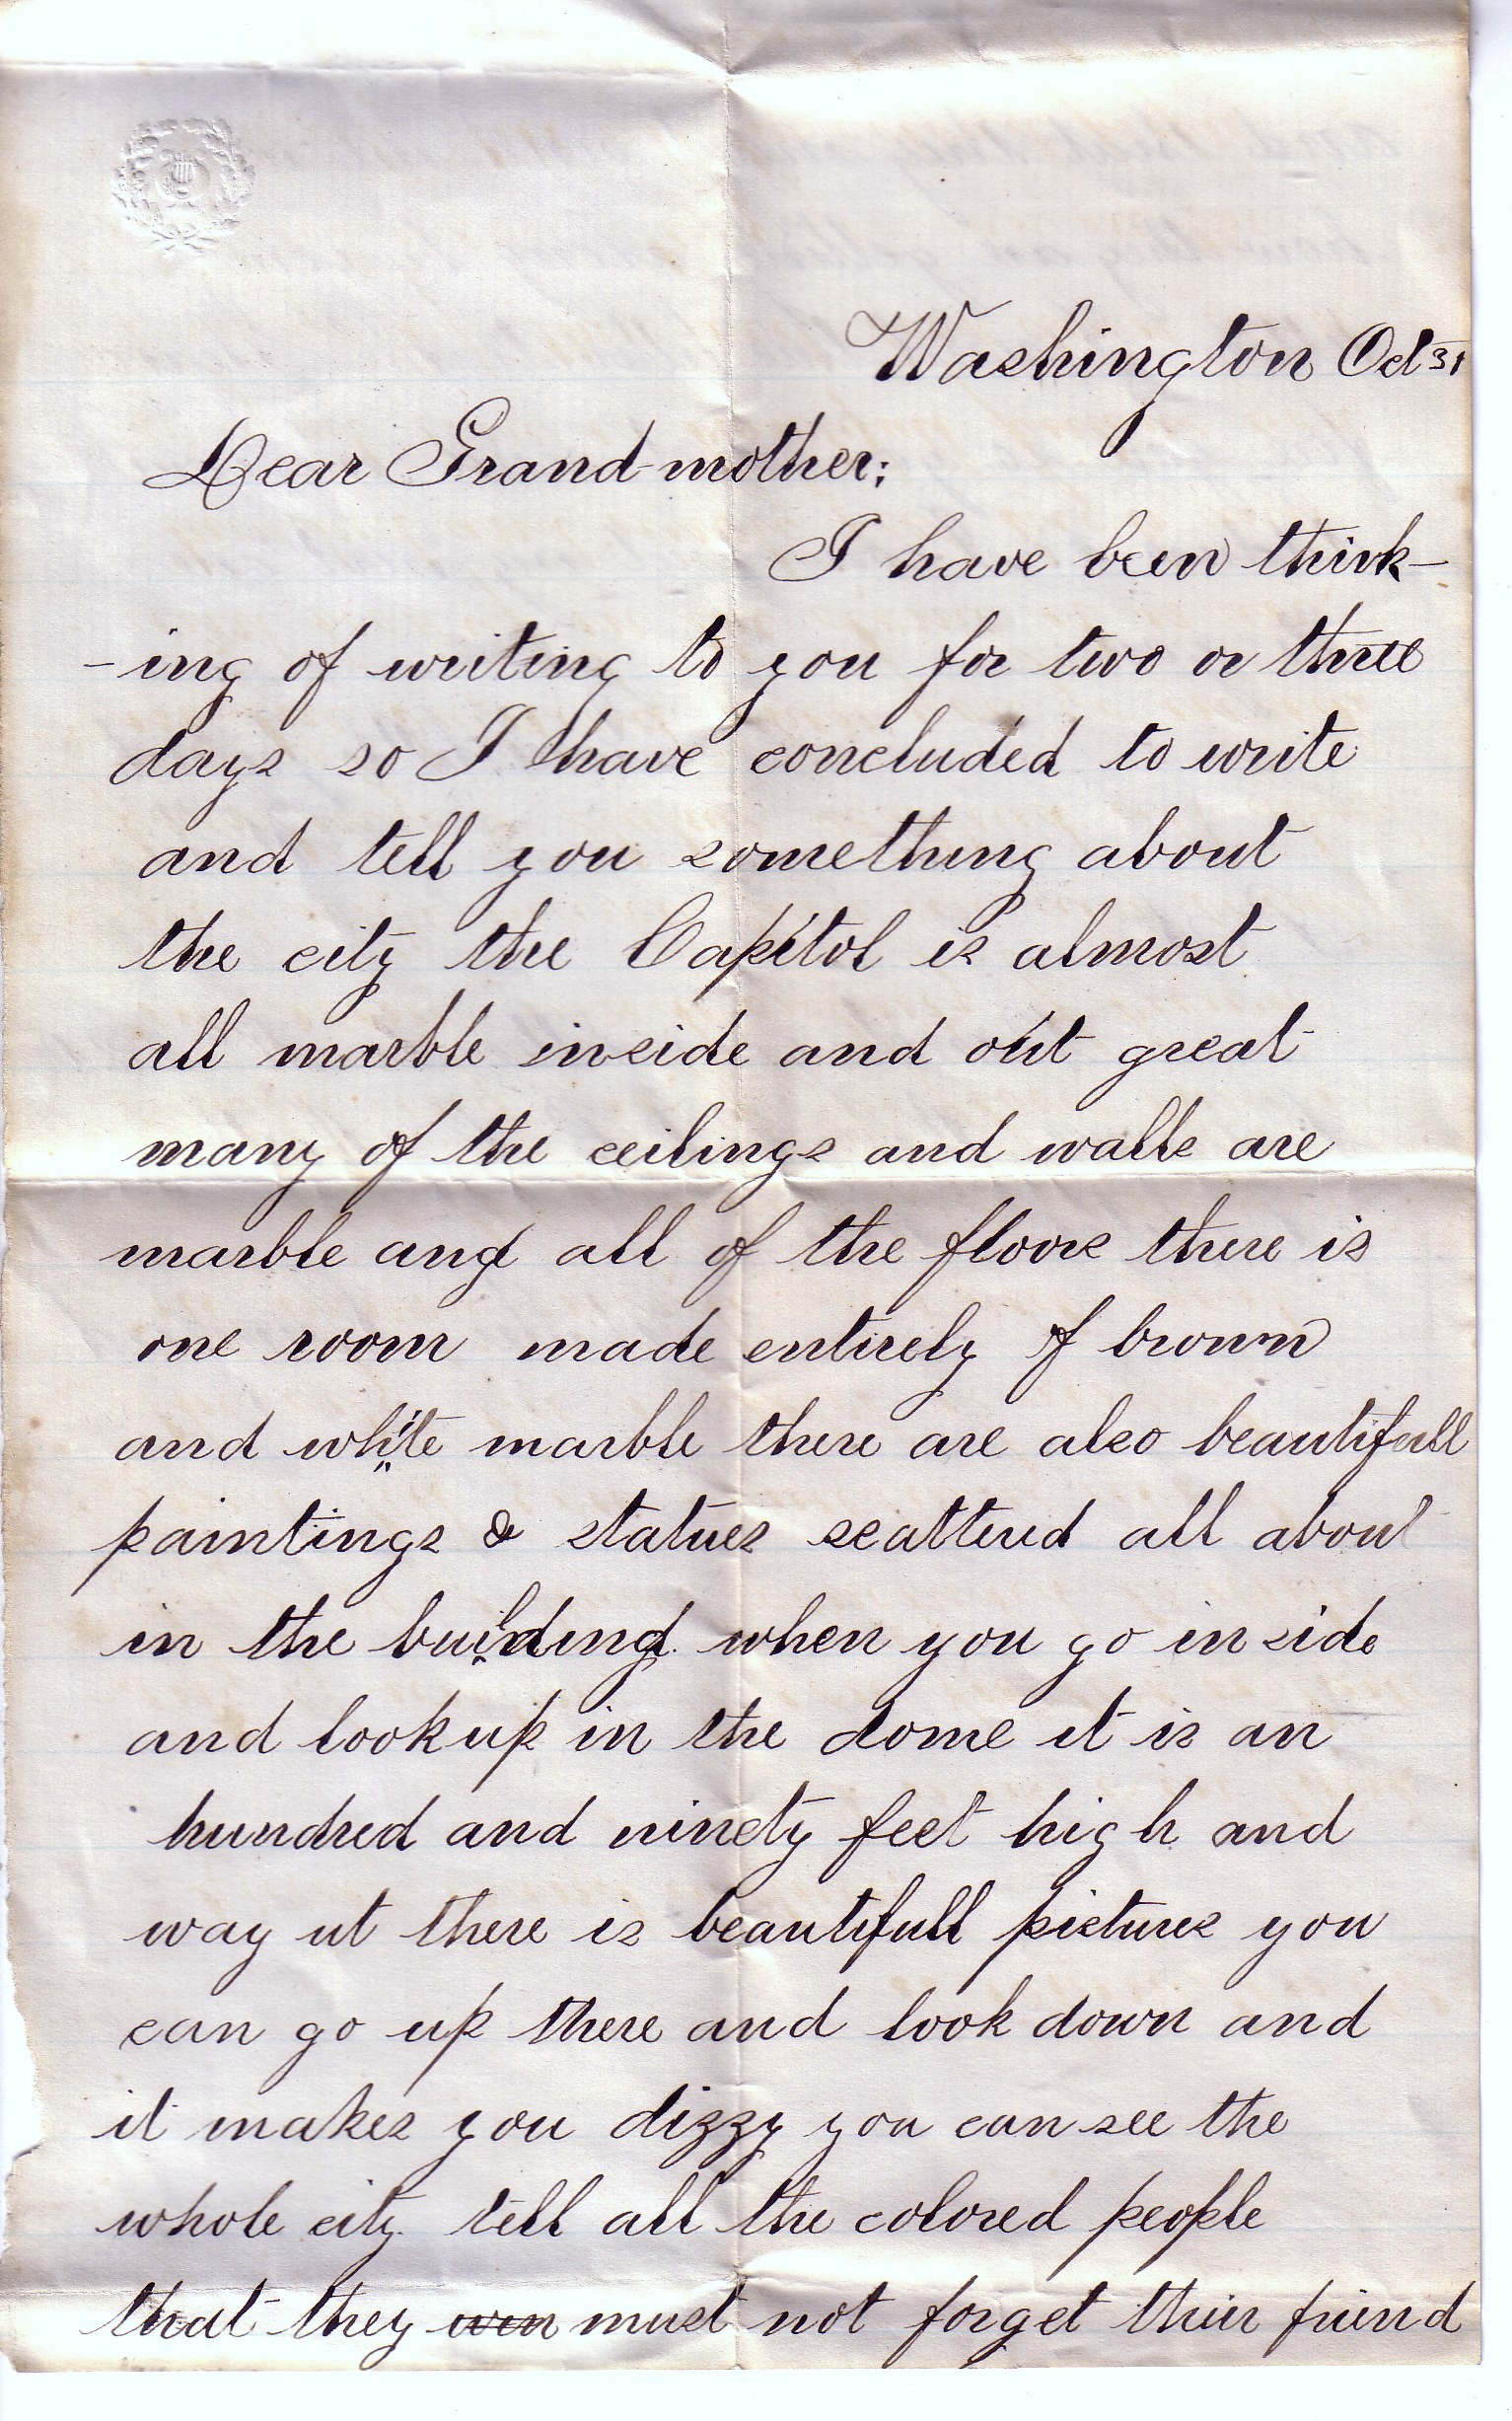 Washington Oct 31
Dear Grand-mother:
I have been think-
-ing of writing to you for two or three
days so I have concluded to write
and tell you something about
the city the Capitol is almost
all marble inside and out great
many of the ceilings and walls are
marble and all of the floors there is
one room made entirely of brown
and white marble there are also beautifull
paintings & statues scattered all about
in the building. when you go in side
and look up in the dome it is an
hundred and ninety feet high and
way ut there is beautifull pictures you
can go up there and look down and
it makes you dizzy you can see the
whole city. tell all the colored people
that they must not forget their friend